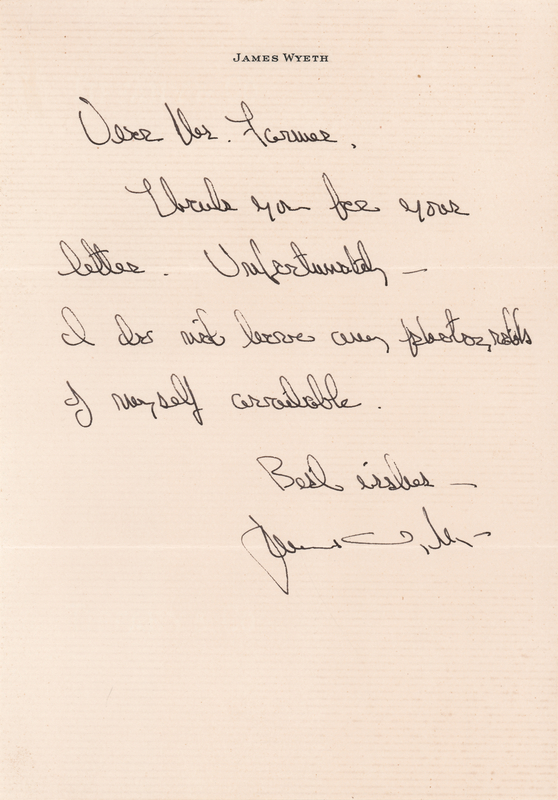 JAMES WYETH
Dear Mr. Farmer,
Thank you for your
letter. Unfortunately —
I do not have any photographs
of myself available.
Best wishes —
James Wyeth